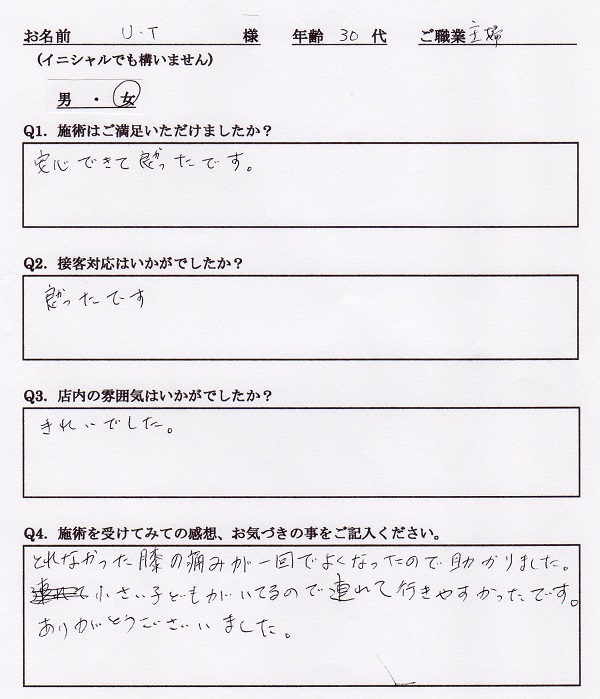 お名前 U.T 様 年齢 30 代 ご職業 主婦
(イニシャルでも構いません)
男 ・ 女
Q1. 施術はご満足いただけましたか？
安心できて良かったです。
Q2. 接客対応はいかがでしたか？
良かったです
Q3. 店内の雰囲気はいかがでしたか？
きれいでした。
Q4. 施術を受けてみての感想、お気づきの事をご記入ください。
とれなかった膝の痛みが一回でよくなったので助かりました。
小さい子どもがいてるので連れて行きやすかったです。
ありがとうございました。